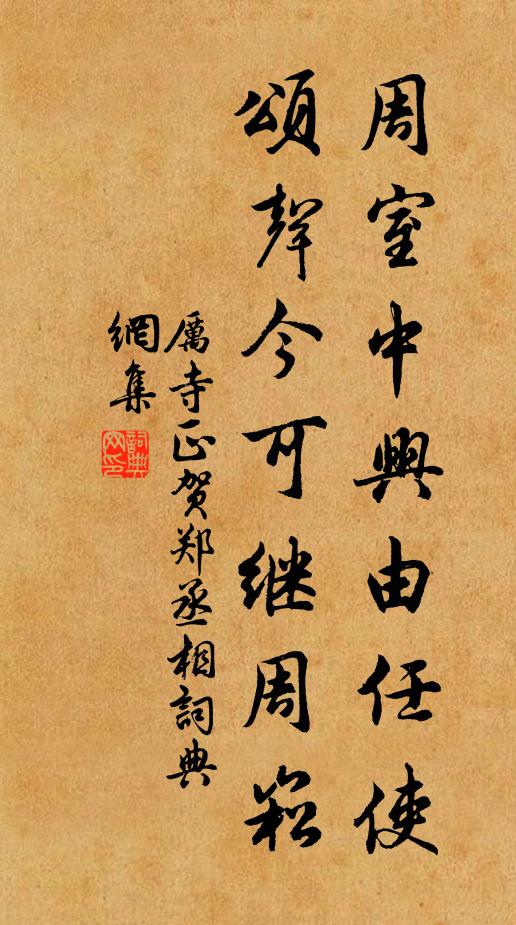 周室中興由任使
頌聲今可继周崧
厲寺正贺郑丞相詞典
網集
詞典
网印